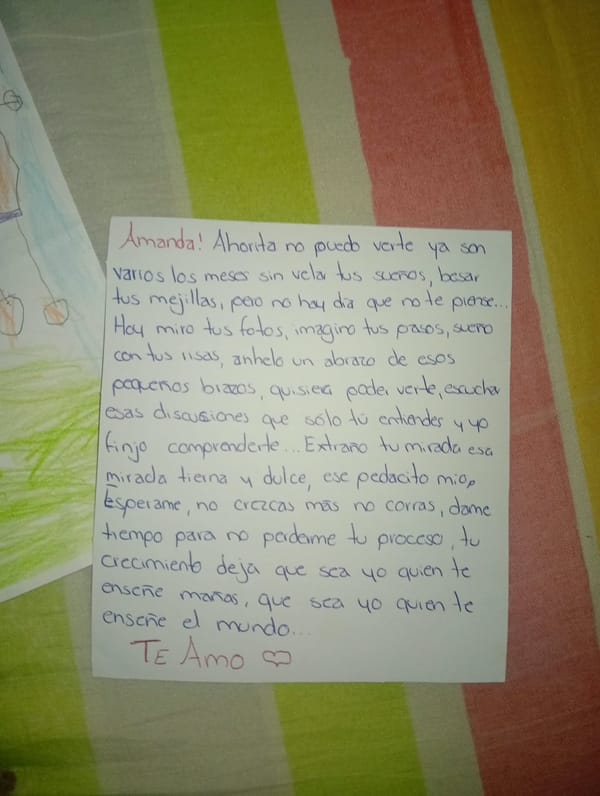 Amanda! Ahorita no puedo verte ya son
varios los meses sin velar tus sueños, besar
tus mejillas, pero no hay día que no te piense...
Hoy miro tus fotos, imagino tus pasos, sueño
con tus risas, anhelo un abrazo de esos
pequeños brazos, quisiera poder verte, escuchar
esas discusiones que sólo tú entiendes y yo
finjo comprenderte... Extraño tu mirada esa
mirada tierna y dulce, ese pedacito mio,
Esperame, no crezcas más no corras, dame
tiempo para no perderme tu proceso, tu
crecimiento deja que sea yo quien te
enseñe mañas, que sea yo quien te
enseñe el mundo...
TE AMO ♡